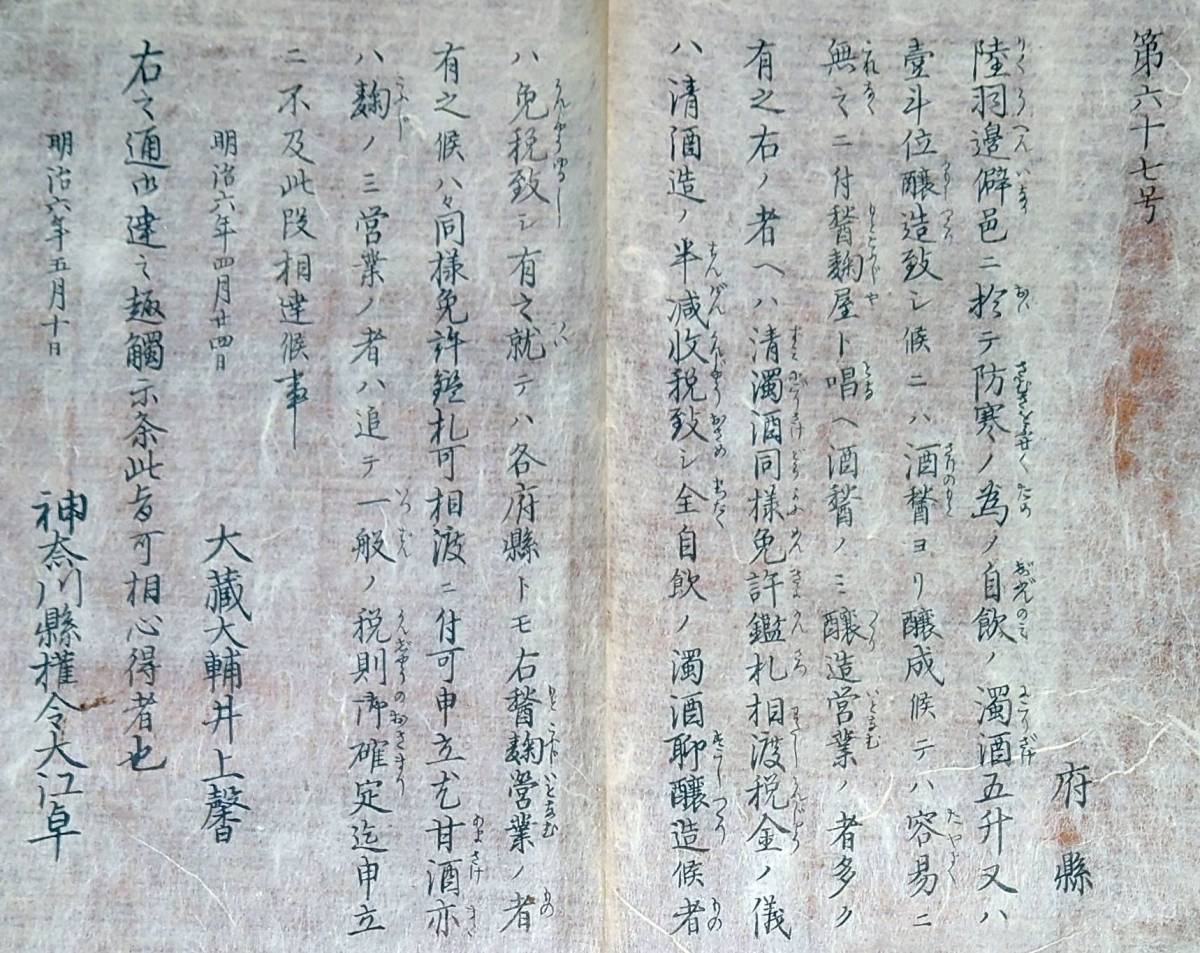 第六十七号
府縣
陸羽邊僻邑ニ於テ防寒ノ為ノ自飲ノ濁酒五升又ハ
壹斗位醸造致シ候ニハ酒醔ヨリ醸成候テハ容易ニ
無之ニ付醔麹屋ト唱ヘ酒醔ノミ醸造営業ノ者多ク
有之右ノ者ヘハ清濁酒同様免許鑑札相渡税金ノ儀
ハ清酒造ノ半減收税致シ全自飲ノ濁酒聊醸造候者
ハ免税致シ有之就テハ各府縣トモ右醔麹營業ノ者
有之候ハヽ同様免許鑑札可相渡ニ付可申立尤甘酒亦
ハ麹ノミ営業ノ者ハ追テ一般ノ税則御確定迄申立
ニ不及此段相達候事
明治六年四月廿四日
大藏大輔井上馨
右之通御達之趣觸示条此旨可相心得者也
明治六年五月十日
神奈川縣權令大江卓